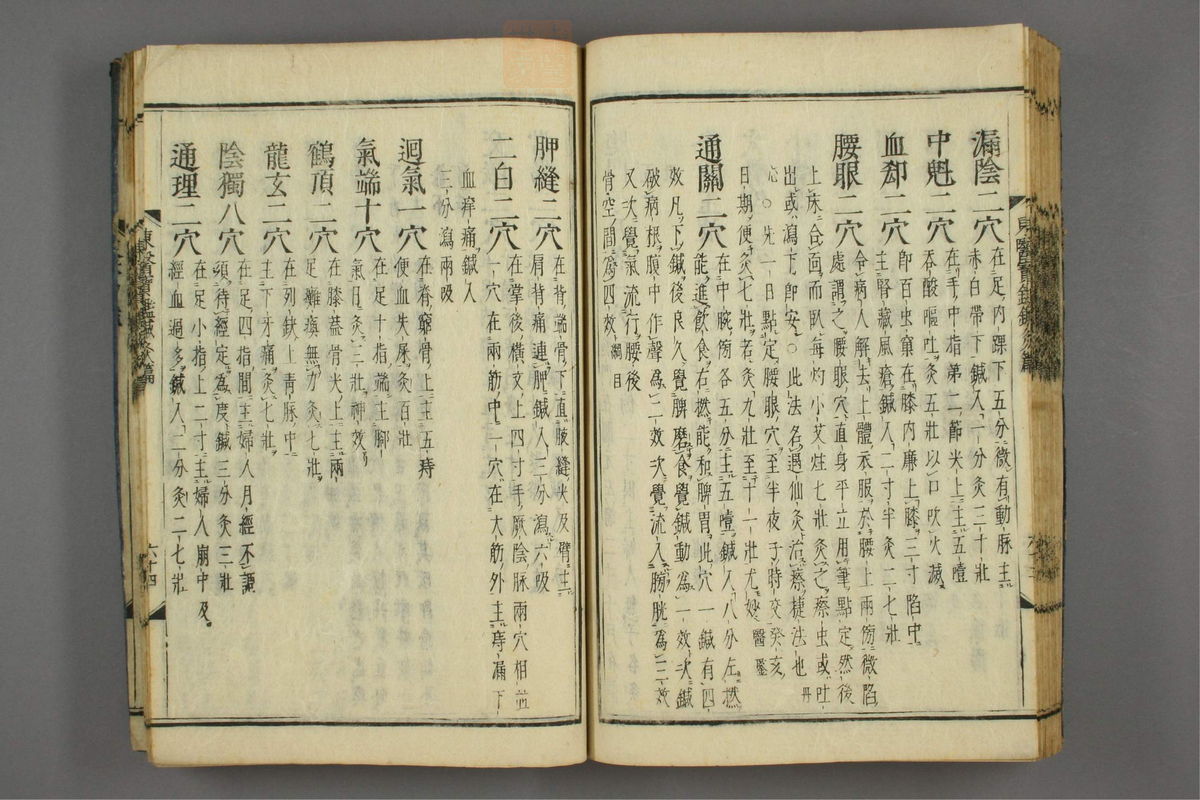 漏陰二穴 在足内踝下五分微有動脉主
赤白帶下鍼入一分灸三十壯
中魁二穴 在手中指第二節尖上主五噎
吞酸嘔吐灸五壯以口吹火滅
血郄二穴 即百虫窠在膝内廉上膝三寸陷中
主腎藏風瘡鍼入二寸半灸二七壯
腰眼二穴 令病人解去上體衣服於腰上兩傍微陷
處謂之腰眼穴直身平立用筆點定然後
上床合面而臥每灼小艾炷七壯灸之瘵虫或吐
出或瀉下即安○此法名遇仙灸治瘵捷法也丹
心○先一日點定腰眼穴至半夜子時交癸亥
日期便灸七壯若灸九壯至十一壯尤妙醫鑒
通關二穴 在中脘傍各五分主五噎鍼入八分左撚
能進飮食右撚能和脾胃此穴一鍼有四
效凡下鍼後良久覺脾磨食覺鍼動為一效次鍼
破病根腹中作聲為二效次覺流入膀胱為三效
又次覺氣流行腰後
骨空間為四效綱目
胛縫二穴 在背端骨下直腋縫尖及臂主
肩背痛連胛鍼入三分瀉六吸
二白二穴 在掌後橫文上四寸手厥陰脉兩穴相並
一穴在兩筋中一穴在大筋外主痔漏下
血痒痛鍼入
三分瀉兩吸
迴氣一穴 在脊窮骨上主五痔
便血失尿灸百壯
氣端十穴 在足十指端主脚
氣日灸三壯神效
鶴頂二穴 在膝蓋骨尖上主兩
足癱瘓無力灸七壯
龍玄二穴 在列缺上青脉中
主下牙痛灸七壯
陰獨八穴 在足四指間主婦人月經不調
須待經定為度鍼三分灸三壯
通理二穴 在足小指上二寸主婦人崩中及
經血過多鍼入二分灸二七壯
東醫寶鑑鍼灸篇
六十四